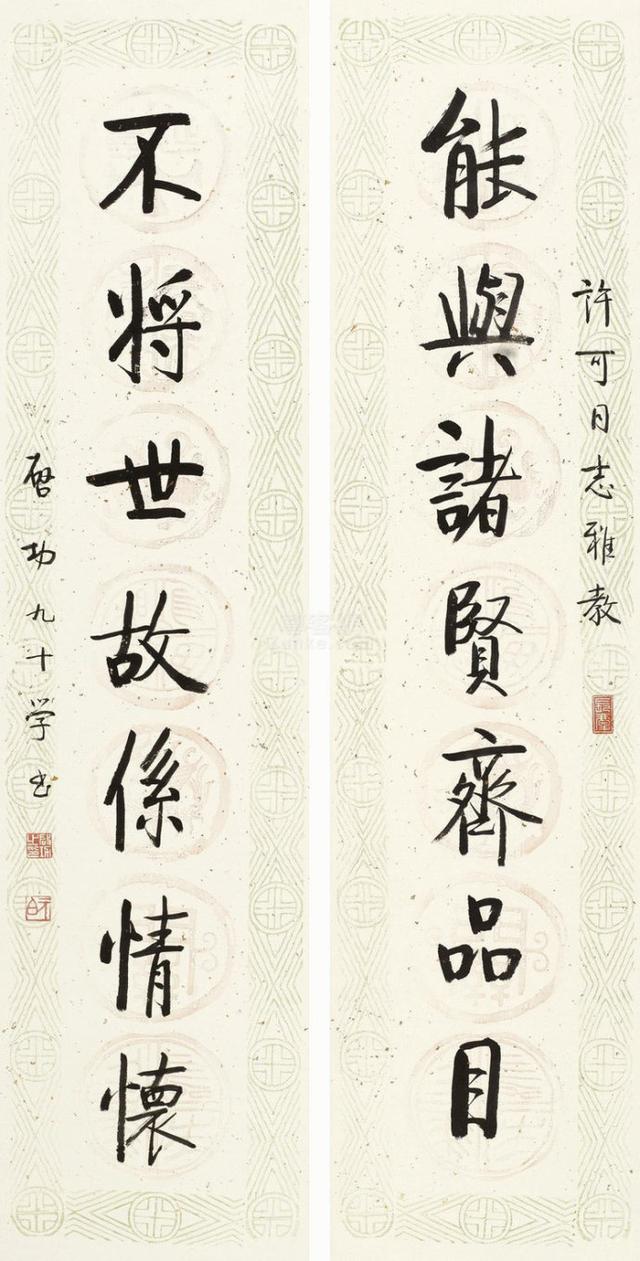 許可同志雅教
能與諸賢齊品目
不将世故係情懷
启功九十学书